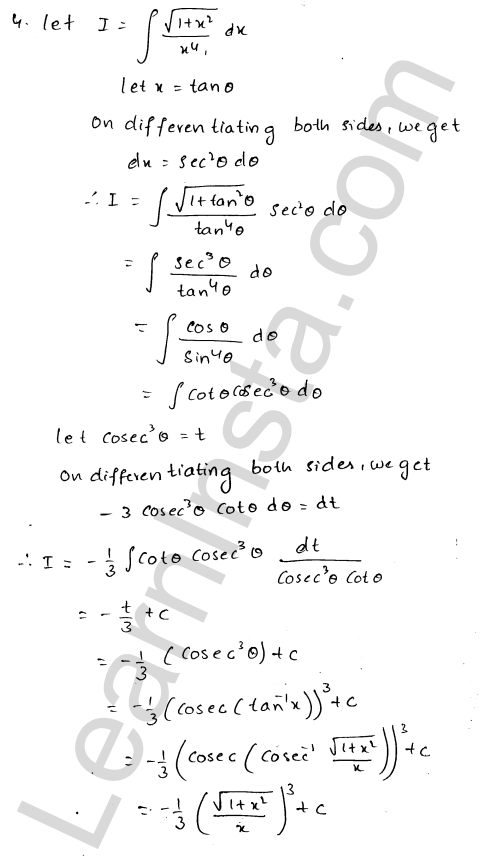 4. let I = ∫ √(1+x²)/x⁴ dx
let x = tanθ
On differentiating both sides, we get
dx = sec²θ dθ
∴ I = ∫ √(1+tan²θ)/tan⁴θ sec²θ dθ
= ∫ sec³θ/tan⁴θ dθ
= ∫ cosθ/sin⁴θ dθ
= ∫ cotθ cosec³θ dθ
let cosec³θ = t
On differentiating both sides, we get
– 3 cosec³θ cotθ dθ = dt
∴ I = –1/3 ∫ cotθ cosec³θ dt/(cosec³θ cotθ)
= – t/3 + c
= –1/3 (cosec³θ) + c
= –1/3 (cosec(tan⁻¹x))³ + c
= –1/3 (cosec(cosec⁻¹ √(1+x²)/x))³ + c
= –1/3 (√(1+x²)/x)³ + c
LearnInsta.com